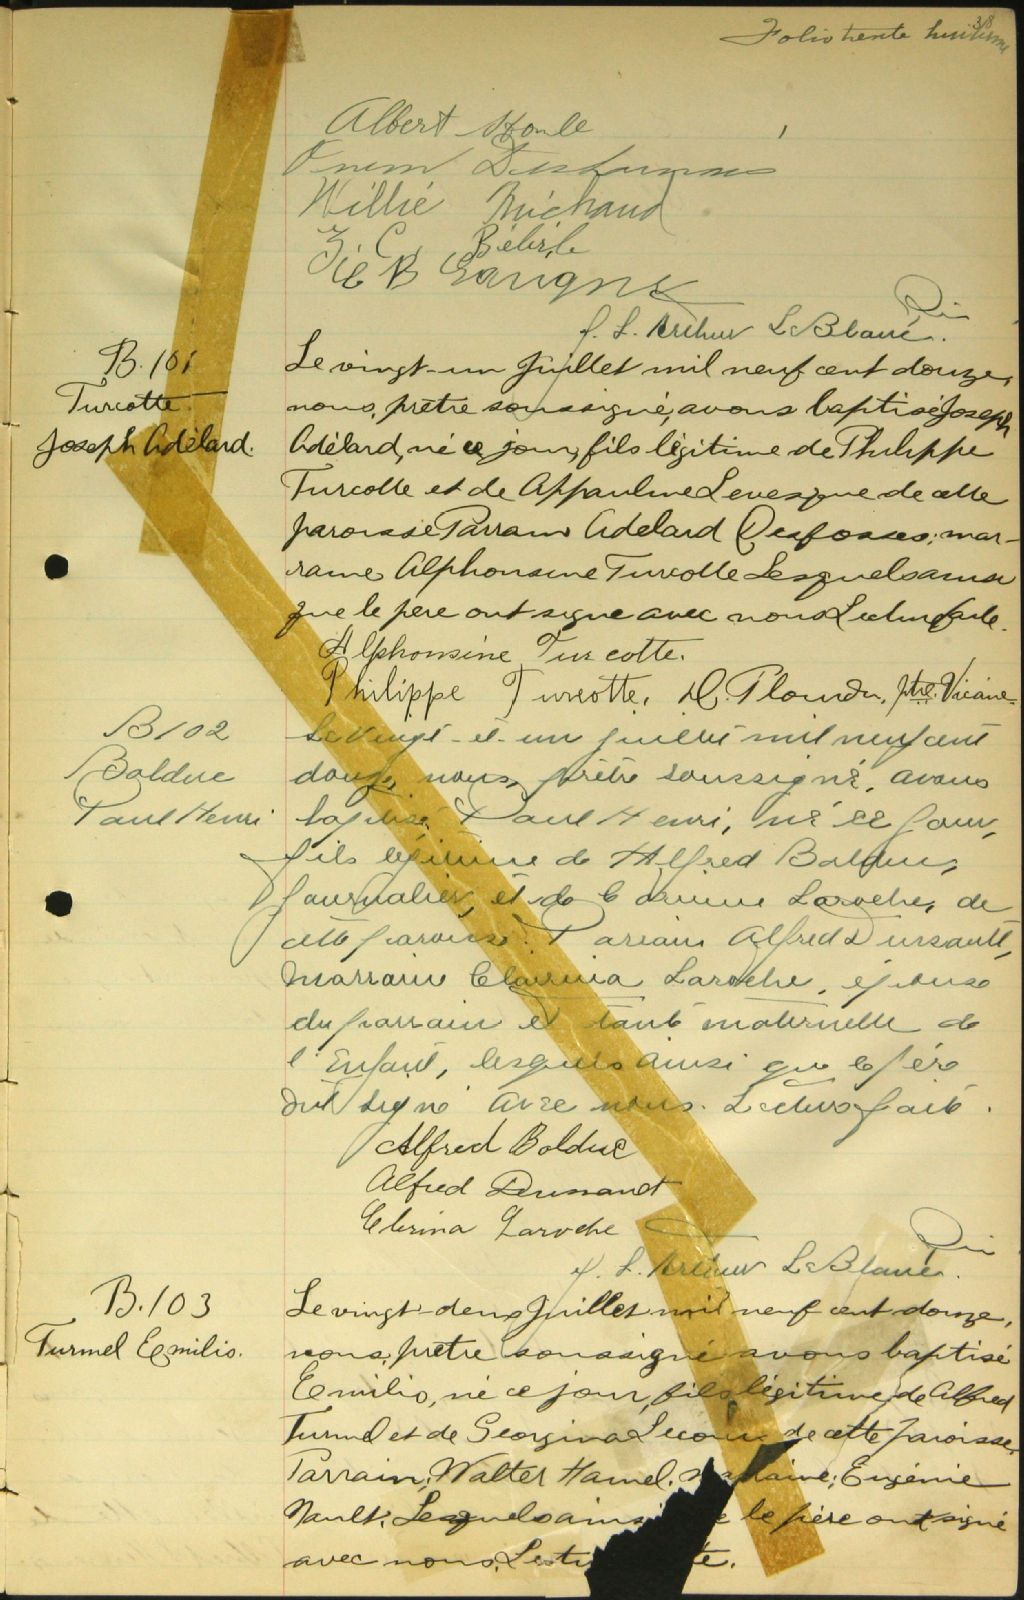 38
Folio trente huitième
Albert Houle
Willie Michaud
Z. C. Bélisle
J. E. B. Savigny
J. L. Arthur LeBlanc. Ptre
B. 101
Turcotte
Joseph Adélard.
Le vingt-un Juillet mil neuf cent douze,
nous, prêtre soussigné, avons baptisé Joseph
Adélard, né ce jour, fils légitime de Philippe
Turcotte et de Appauline Levesque de cette
paroisse Parrain Adelard Desfosses; mar-
raine Alphonsine Turcotte Lesquels ainsi
que le père ont signé avec nous Lecture faite.
Alphonsine Turcotte.
Philippe Turcotte. D. Plourde, ptre. Vicaire
B 102
Bolduc
Paul Henri
Le vingt-et-un juillet mil neuf cent
douze, nous, prêtre soussigné, avons
baptisé Paul Henri, né ce jour,
fils légitime de Alfred Bolduc,
journalier, et de Corinne Laroche, de
cette paroisse. Parrain Alfred Dussault,
marraine Clarina Laroche, épouse
du parrain et tante maternelle de
l'Enfant, lesquels ainsi que le père
ont signé avec nous. Lecture faite.
Alfred Bolduc
Alfred Dussault
Clerina Laroche
J. L. Arthur LeBlanc. Ptre
B. 103
Turmel Emilio.
Le vingt-deux Juillet mil neuf cent douze,
nous, prêtre soussigné avons baptisé
Emilio, né ce jour, fils légitime de Alfred
Turmel et de Georgina Lecours de cette Paroisse.
Parrain; Walter Hamel. marraine; Eugénie
Nault. Lesquels ainsi le père ont signé
avec nous.